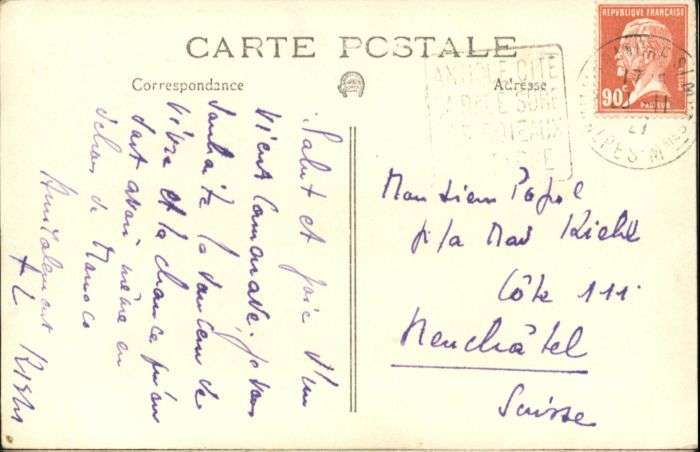 CARTE POSTALE
Correspondance
Adresse
RÉPUBLIQUE FRANÇAISE
90c
PASTEUR
ANTIQUE CITÉ
COTEAUX
ALPES MMES
Salut et joie d'un
vieux Camarade. Je vous
souhaite la douceur de
vivre et la chance qu'on
doit avoir même en
dehors de Monaco
Amicalement
Monsieur Popol
p/a Mad
Côte 111
Neuchâtel
Suisse